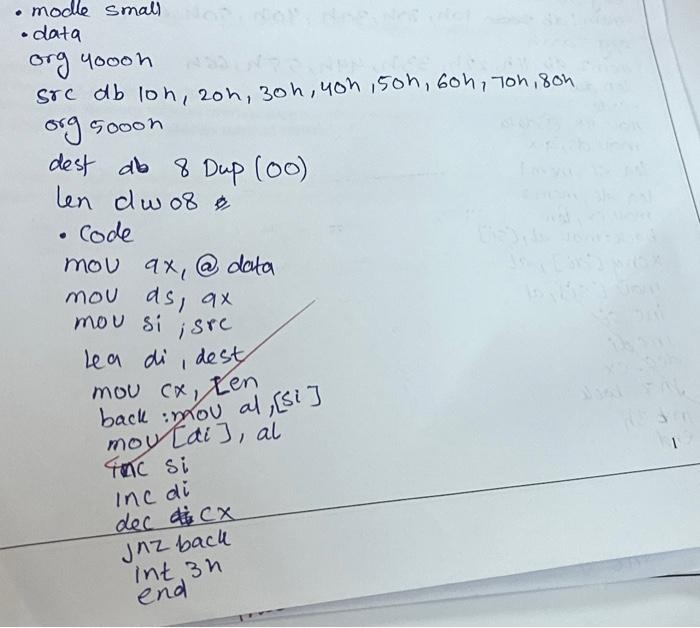 • modle small
• data
org 4000h
src db 10h, 20h, 30h, 40h, 50h, 60h, 70h, 80h
org 5000h
dest db 8 Dup (00)
len dw 08
• Code
mov ax, @ data
mov ds, ax
mov si ; src
lea di , dest
mov cx, Len
back : mov al, [si]
mov [di], al
inc si
inc di
dec cx
jnz back
int 3h
end